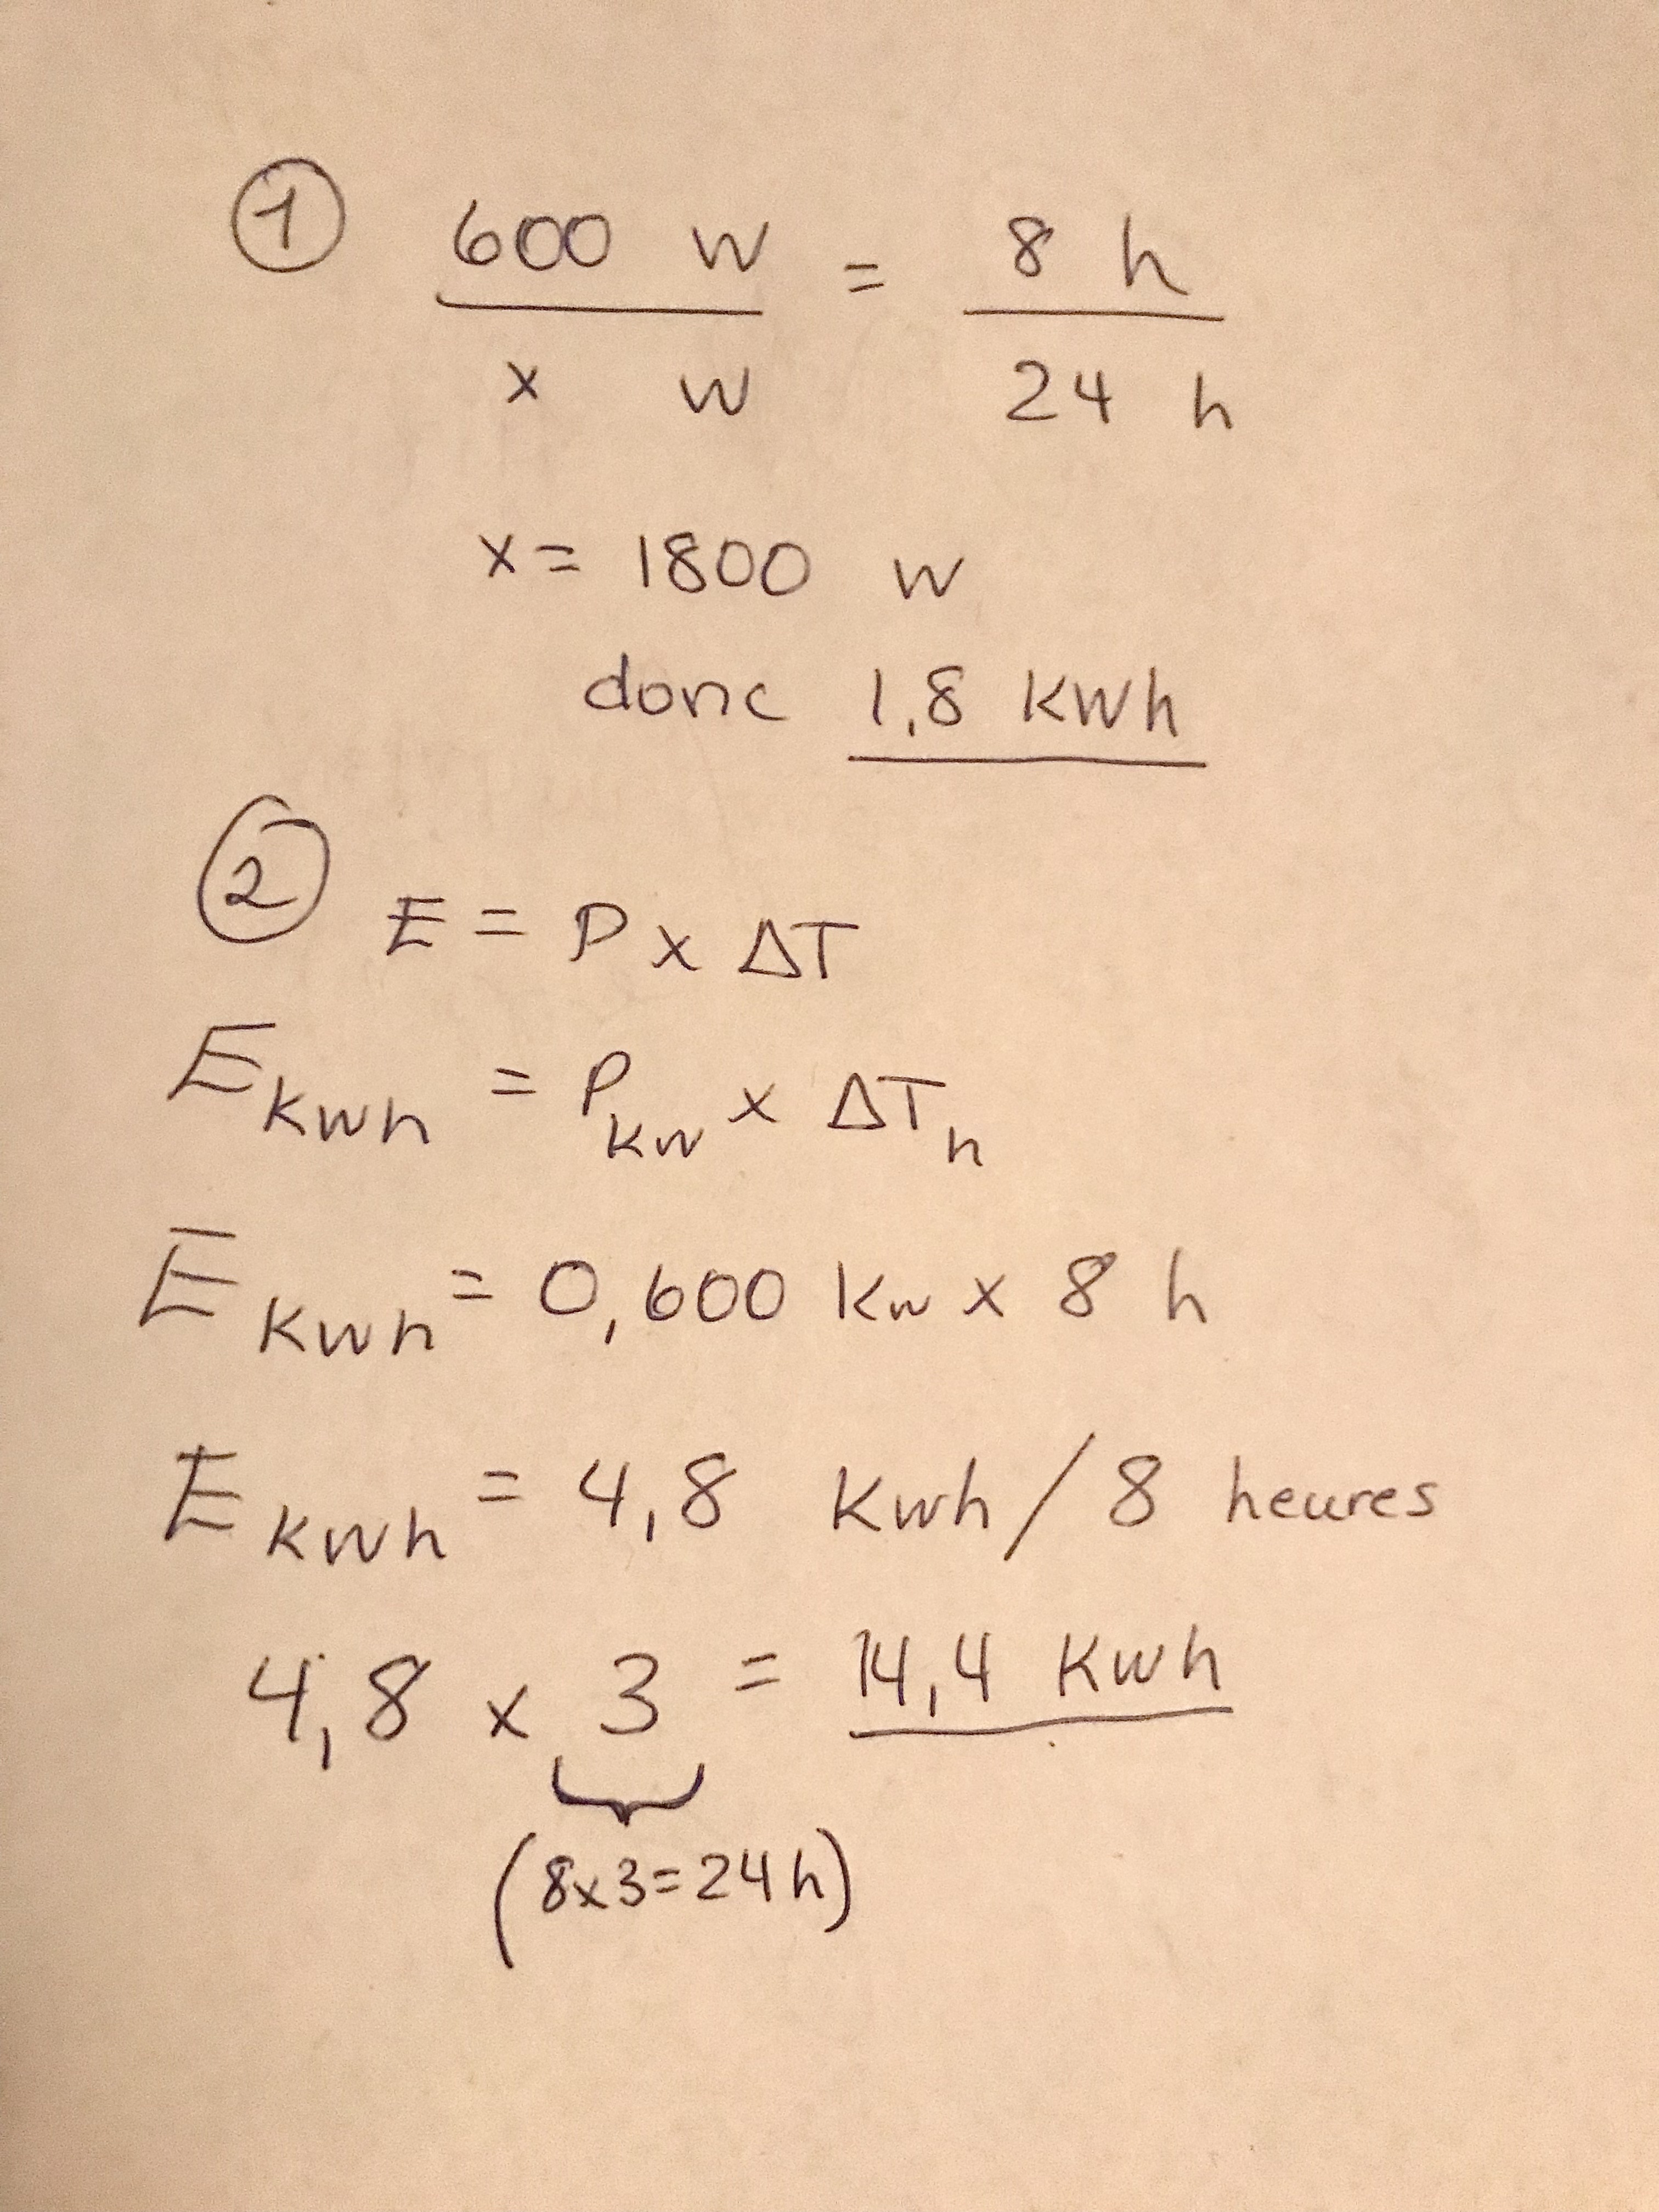 ① 600 w = 8 h
x w 24 h
x = 1800 w
donc 1,8 KWh
② E = P x ΔT
E KWh = P KW x ΔT h
E KWh = 0,600 KW x 8 h
E KWh = 4,8 Kwh / 8 heures
4,8 x 3 = 14,4 KWh
(8x3=24h)